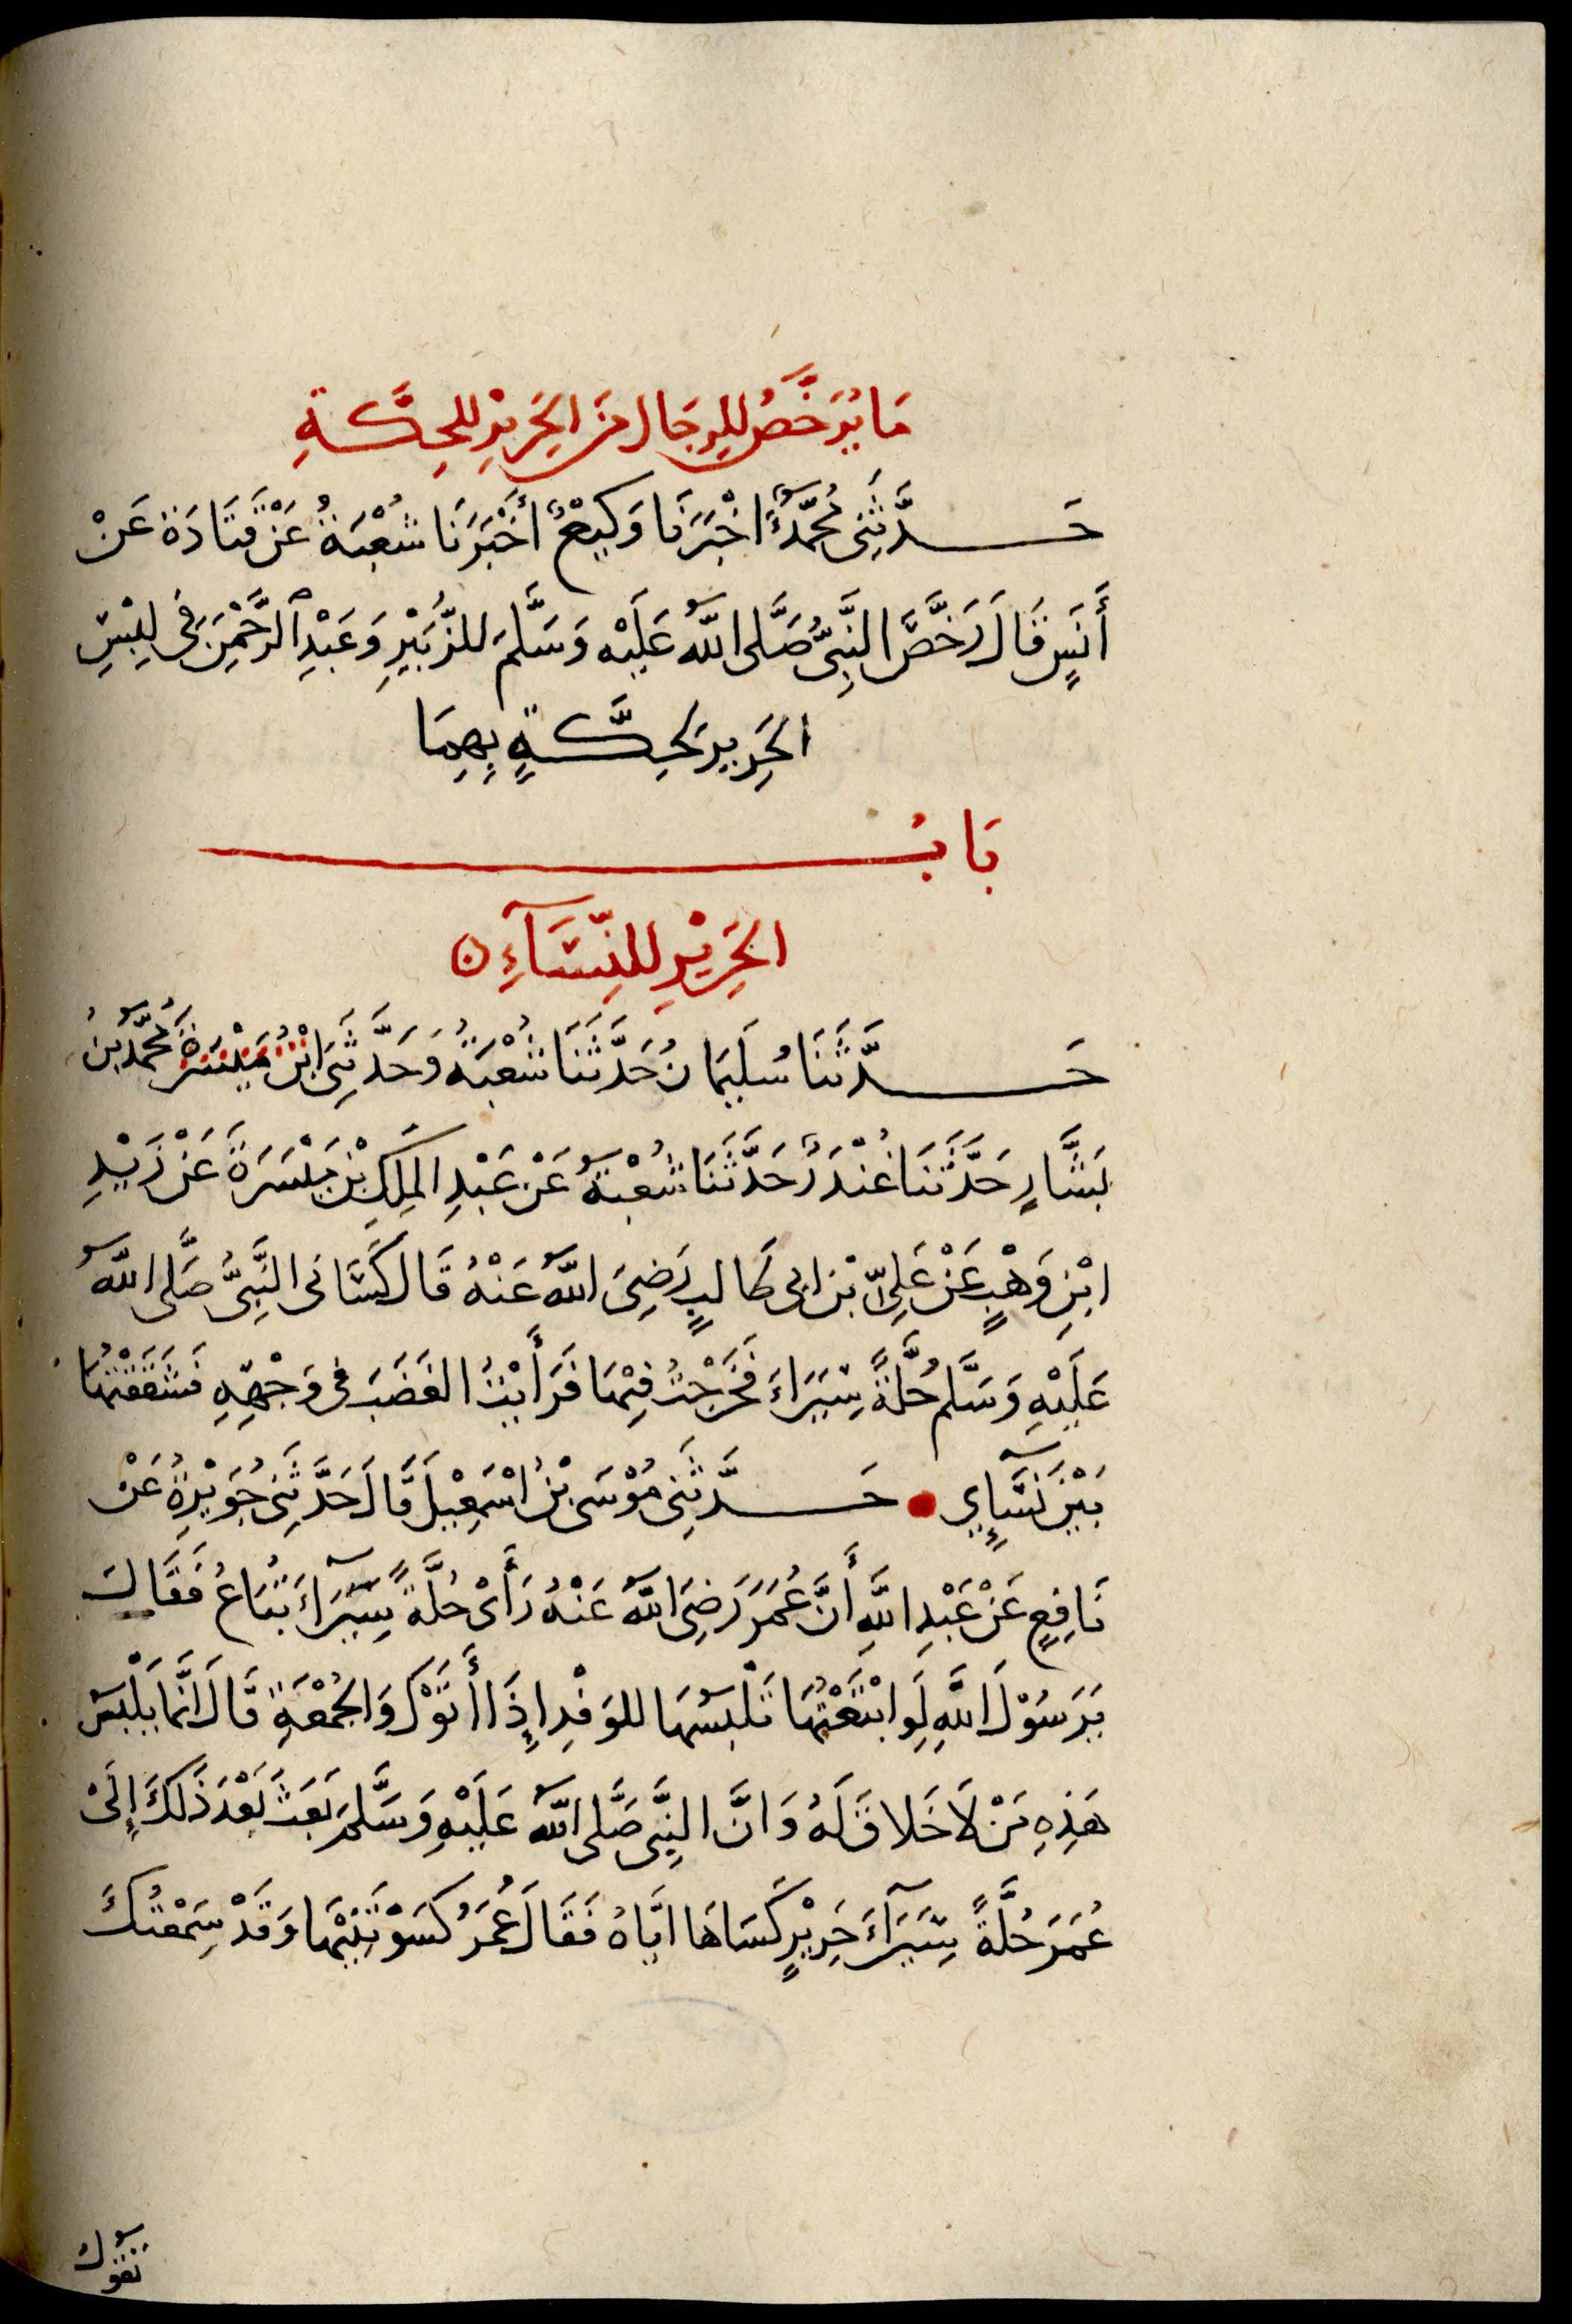 مَا يُرَخَّصُ لِلرِّجَالِ مِنَ الحَرِيْرِ لِلحِكَّةِ
حَدَّثَنِى مُحَمَّدٌ اخْبَرَنَا وَكِيْعٌ أَخْبَرَنَا شُعْبَةُ عَنْ قَتَادَةَ عَنْ
أَنَسٍ قَالَ رَخَّصَ النَّبِىُّ صَلَّى اللّهُ عَلَيْهِ وَسَلَّمَ لِلزُّبَيْرِ وَعَبْدِ الرَّحْمٰنِ فى لِبْسِ
الحَرِيرِ لَحِكَّةٍ بِهِمَا
بَابُ
الحَرِيْرِ لِلنِّسَآءِ ن
حَدَّثَنَا سُلَيمَانُ حَدَّثَنَا شُعْبَةُ وَحَدَّثَنِى ابْنُ مَيْسَرَةَ مُحَمَّدُ بنُ
بَشَّارٍ حَدَّثَنَا غُنْدَرٌ حَدَّثَنَا شُعْبَةُ عَنْ عَبْدِ المَلِكِ بْنِ مَيْسَرَةَ عَنْ زَيْدِ
ابْنِ وَهْبٍ عَنْ عَلِىِّ بْنِ ابى طَالِبٍ رَضِىَ اللّهُ عَنْهُ قَالَ كَسَانى النَّبِىُّ صَلَّى اللّهُ
عَلَيْهِ وَسَلَّمَ حُلَّةً سِيَرَاءَ فَخَرَجْتُ فِيْهَا فَرَأَيْتُ الغَضَبَ فى وَجْهِهِ فَشَقَقْتُهَا
بَيْنَ نِسَآءِي حَدَّثَنِى مُوْسَى بْنُ اسْمَعِيْلَ قَالَ حَدَّثَنِى جُوَيْرِةُ عَنْ
نَافِعٍ عَنْ عَبْدِ اللّهِ أَنَّ عُمَرَ رَضِىَ اللّهُ عَنْهُ رَأَىْ حُلَّةً سِيَرَآءَ تُبَاعُ فَقَالَ
يَرَسُوْلَ اللّهِ لَوِ ابْتَعْتَهَا تَلْبسُهَا لِلوَفْدِ إِذَا أَتَوْكَ وَالجُمْعَةِ قَالَ انَّمَا يَلْبَسُ
هَذِهِ مَنْ لَا خَلاقَ لَهُ وَانَّ النَّبِىَّ صَلَّى اللّهُ عَلَيْهِ وَسَلَّمَ بَعَثَ بَعْدَ ذَلَكَ إِلَىْ
عُمَرَ حُلَّةً سِيَرَآءَ حَرِيْرٍ كَسَاهَا ايَّاهُ فَقَالَ عُمَرُ كَسَوْتَنِيْهَا وَقَدْ سِمَعْتُكَ
تقول